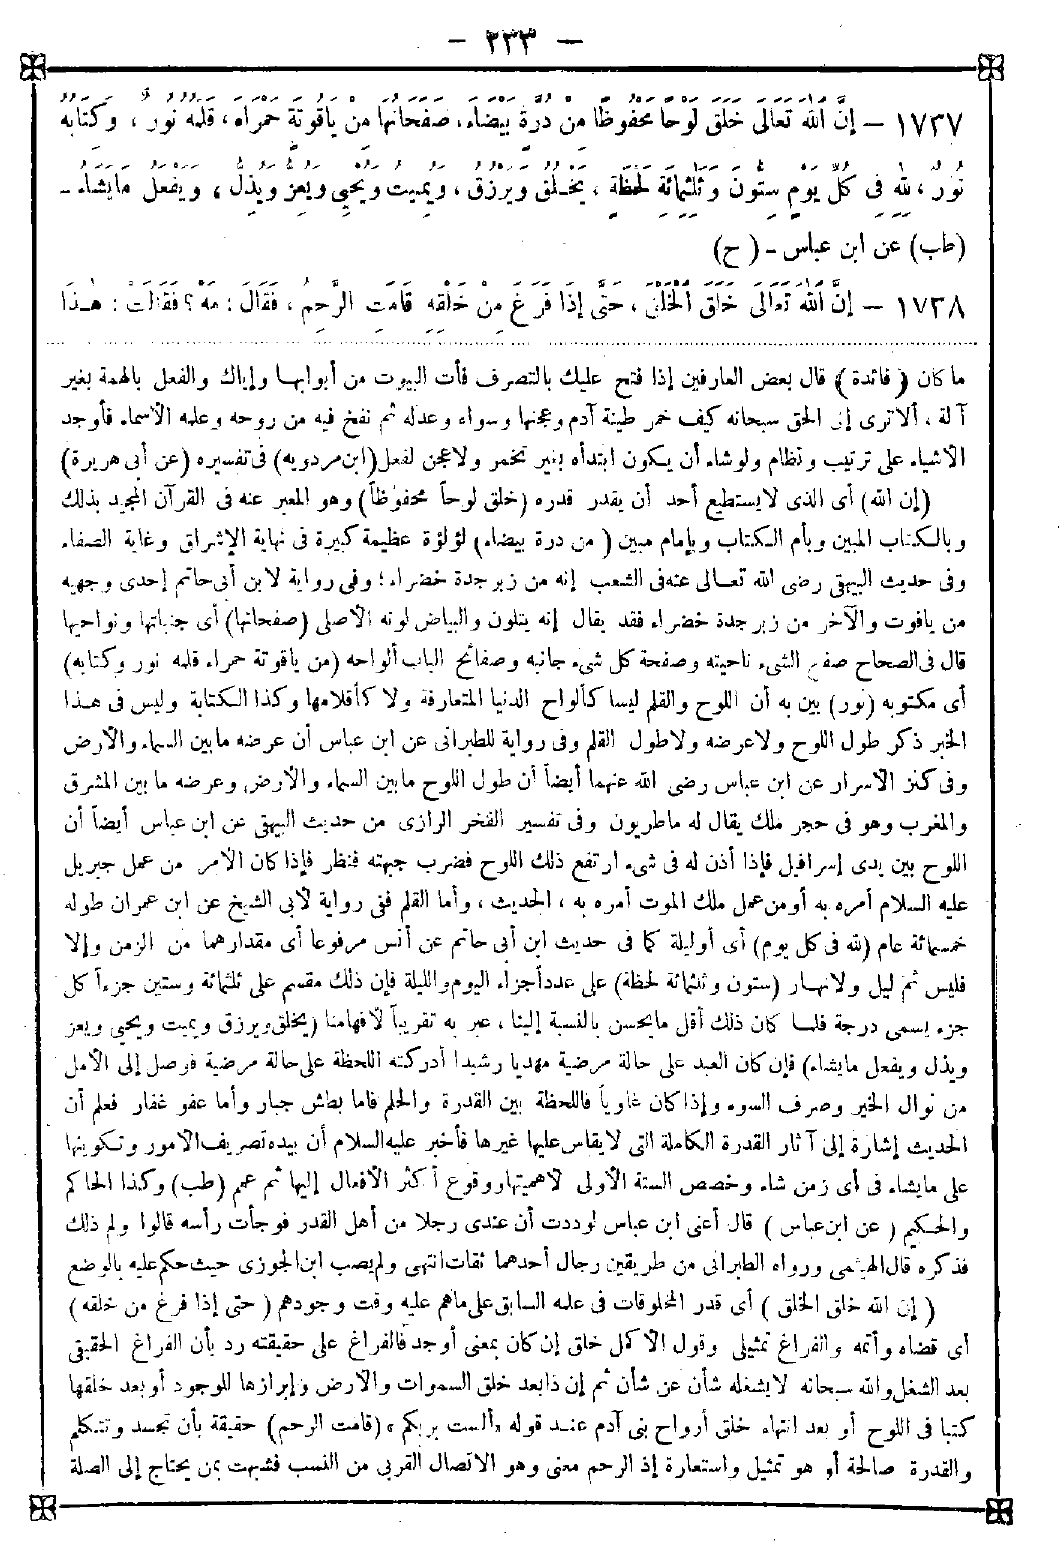 — ٢٢٣ —
١٧٣٧ — إِنَّ اللهَ تَعَالَى خَلَقَ لَوْحًا مَحْفُوظًا مِنْ دُرَّةٍ بَيْضَاءَ، صَفَحَاتُهَا مِنْ يَاقُوتَةٍ حَمْرَاءَ، قَلَمُهُ نُورٌ، وَكِتَابُهُ
نُورٌ، لِلهِ فِى كُلِّ يَوْمٍ سِتُّونَ وَثَلَثُمِائَةِ لَحْظَةٍ، يَخْلُقُ وَيَرْزُقُ، وَيُمِيتُ وَيُحْيِى وَيُعِزُّ وَيُذِلُّ، وَيَفْعَلُ مَايَشَاءُ -
(طب) عن ابن عباس - (ح)
١٧٣٨ — إِنَّ اللهَ تَعَالَى خَلَقَ الْخَلْقَ، حَتَّى إِذَا فَرَغَ مِنْ خَلْقِهِ قَامَتِ الرَّحِمُ، فَقَالَ: مَهْ؟ فَقَالَتْ: هٰذَا
ما كان (فائدة) قال بعض العارفين إذا فتح عليك بالتصرف فأت البيوت من أبوابها وإياك والفعل بالهمة بغير
آلة، ألا ترى إلى الحق سبحانه كيف خمر طينة آدم وعجنها وسواه وعدله ثم نفخ فيه من روحه وعلمه الأسماء فأوجد
الأشياء على ترتيب ونظام ولوشاء أن يكون ابتدأه بغير تخمر ولا عجن لفعل (ابن مردويه) فى تفسيره (عن أبى هريرة)
(إن الله) أى الذى لايستطيع أحد أن يقدر قدره (خلق لوحاً محفوظاً) وهو المعبر عنه فى القرآن المجيد بذلك
وبالكتاب المبين وبأم الكتاب وبإمام مبين (من درة بيضاء) لؤلؤة عظيمة كبيرة فى نهاية الإشراق وغاية الصفاء
وفى حديث البيهقى رضى الله تعالى عنه فى الشعب إنه من زبرجدة خضراء؛ وفى رواية لابن أبى حاتم إحدى وجهيه
من ياقوت والآخر من زبرجدة خضراء فقد يقال إنه يتلون والبياض لونه الأصلى (صفحاتها) أى جنباتها ونواحيها
قال فى الصحاح صفح الشىء ناحيته وصفحة كل شىء جانبه وصفائح الباب ألواحه (من ياقوتة حمراء قلمه نور وكتابه)
أى مكتوبه (نور) بين به أن اللوح والقلم ليسا كألواح الدنيا المتعارفة ولا كأقلامها وكذا الكتابة وليس فى هذا
الخبر ذكر طول اللوح ولا عرضه ولا طول القلم وفى رواية للطبرانى عن ابن عباس أن عرضه مابين السماء والأرض
وفى كنز الأسرار عن ابن عباس رضى الله عنهما أيضاً أن طول اللوح مابين السماء والأرض وعرضه ما بين المشرق
والمغرب وهو فى حجر ملك يقال له ماطريون وفى تفسير الفخر الرازى من حديث البيهقى عن ابن عباس أيضاً أن
اللوح بين يدى إسرافيل فإذا أذن له فى شىء ارتفع ذلك اللوح فضرب جبهته فنظر فإذا كان الأمر من عمل جبريل
عليه السلام أمره به أو من عمل ملك الموت أمره به، الحديث، وأما القلم ففى رواية لأبى الشيخ عن ابن عمران طوله
خمسمائة عام (لله فى كل يوم) أى أوليلة كما فى حديث ابن أبى حاتم عن أنس مرفوعا أى مقدارهما من الزمن وإلا
فليس ثم ليل ولا نهار (ستون وثلثمائة لحظة) على عدد أجزاء اليوم والليلة فإن ذلك مقسم على ثلثمائة وستين جزءاً كل
جزء يسمى درجة فلما كان ذلك أقل مايحسن بالنسبة إلينا، عبر به تقريباً لأفهامنا (يخلق ويرزق ويميت ويحيى ويعز
ويذل ويفعل مايشاء) فإن كان العبد على حالة مرضية مهديا رشيدا أدركته اللحظة على حالة مرضية فوصل إلى الأمل
من نوال الخير وصرف السوء وإذا كان غاوياً فاللحظة بين القدرة والحلم فاما بطش جبار وأما عفو غفار فعلم أن
الحديث إشارة إلى آثار القدرة الكاملة التى لايقاس عليها غيرها فأخبر عليه السلام أن بيده تصريف الأمور وتكوينها
على مايشاء فى أى زمن شاء وخصص الستة الأولى لأهميتها ووقوع أكثر الأفعال إليها ثم عمم (طب) وكذا الحاكم
والحكيم (عن ابن عباس) قال أعنى ابن عباس لوددت أن عندى رجلا من أهل القدر فوجأت رأسه قالوا ولم ذلك
فذكره قال الهيثمى ورواه الطبرانى من طريقين رجال أحدهما ثقات انتهى ولم يصب ابن الجوزى حيث حكم عليه بالوضع
(إن الله خلق الخلق) أى قدر المخلوقات فى علمه السابق على ماهم عليه وقت وجودهم (حتى إذا فرغ من خلقه)
أى قضاه وأتمه والفراغ تمثيلى وقول الأكمل خلق إن كان بمعنى أوجد فالفراغ على حقيقته رد بأن الفراغ الحقيقى
بعد الشغل والله سبحانه لايشغله شأن عن شأن ثم إن ذا بعد خلق السموات والأرض وإبرازها للوجود أو بعد خلقها
كتبا فى اللوح أو بعد انتهاء خلق أرواح بنى آدم عند قوله «ألست بربكم» (قامت الرحم) حقيقة بأن تجسد وتتكلم
والقدرة صالحة أو هو تمثيل واستعارة إذ الرحم معنى وهو الاتصال القربى من النسب فشبهت بمن يحتاج إلى الصلة